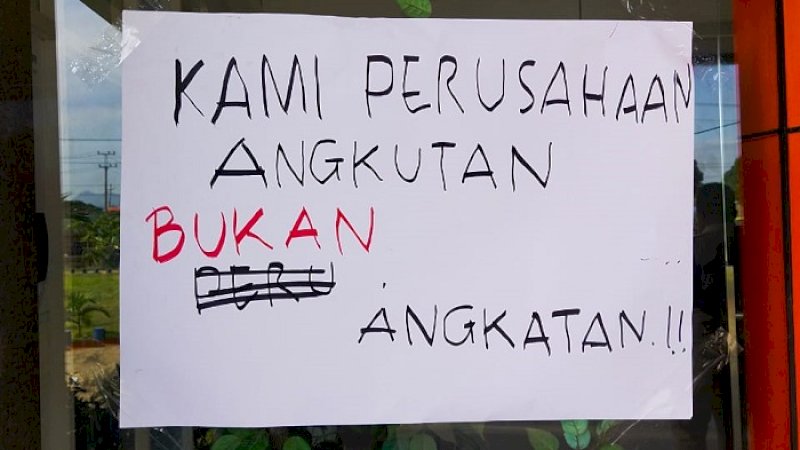 KAMI PERUSAHAAN
ANGKUTAN
BUKAN
ANGKATAN.!!